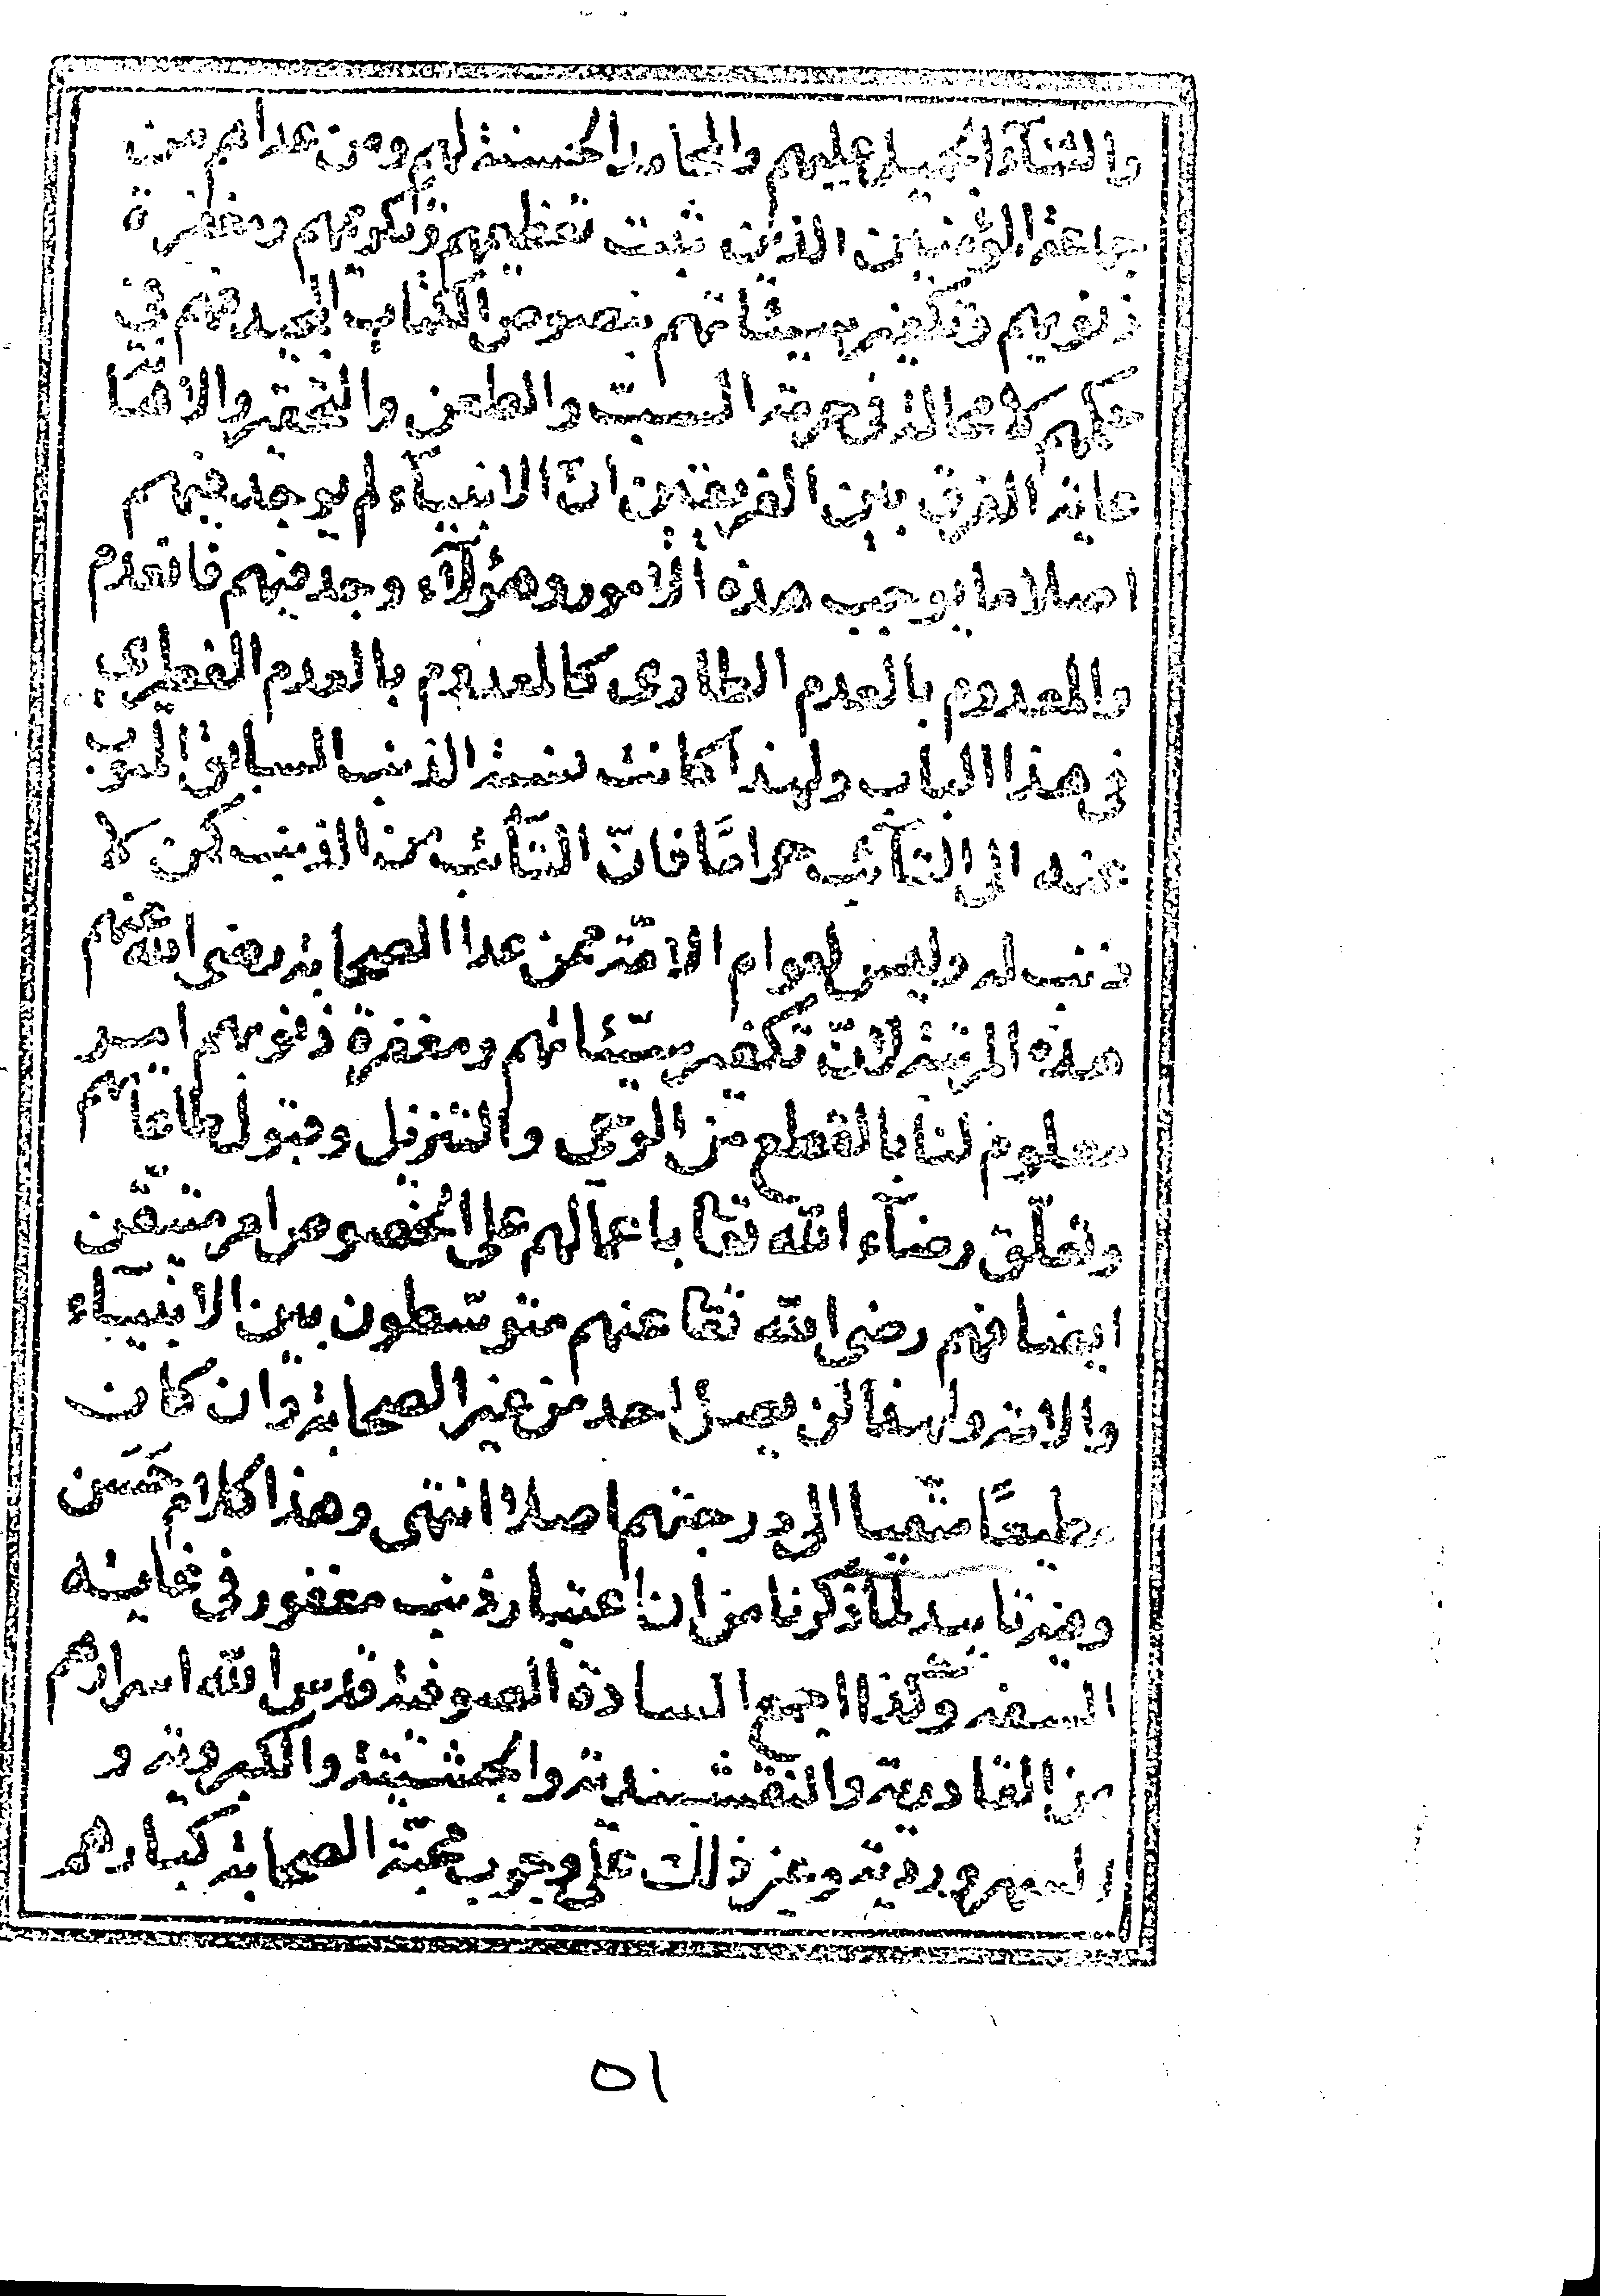 والثنآء الجميل عليهم والمحامد الحسنة لهم ومن عداهم من
جماعة المؤمنين الذين ثبت تعظيمهم وتكريمهم ومغفرة
ذنوبهم وتكفير سيئاتهم بنصوص الكتاب المجيد فهم في
حكمهم لا محالة في حرمة السبّ والطعن والتحقير والاهانة
غاية الفرق بين الفريقين انّ الانبيآء لم يوجد فيهم
اصلا ما يوجب هذه الامور وهؤلآء وجد فيهم فانعدم
والمعدوم بالعدم الطارى كالمعدوم بالعدم الفطري
في هذا الباب ولهذا كانت نسبة الذنب السابق المتوب
عنه الى التّآئب حرامًا فانّ التّآئب من الذنب كمن لا
ذنب له وليس لعوام الامّة ممن عدا الصحابة رضى الله عنهم
هذه المرتبة لانّ تكفير سيّئاتهم ومغفرة ذنوبهم امر
معلوم لنا بالقطع من الوحى والتنزيل وقبول طاعاتهم
وتعلّق رضآء الله تعا باعمالهم على الخصوص امر متيقّن
ايضا فهم رضى الله تعا عنهم متوسّطون بين الانبيآء
والامة ولهذا لن يصل احد من غير الصحابة وان كان
مطيعًا متّقيا الى درجتهم اصلا انتهى وهذا كلام حَسَن
وفيه تاييد لما ذكرنا من ان اعتبار ذنب مغفور في غاية
السفه ولذا اجمع السادة الصوفية قدس الله اسرارهم
من القادرية والنقشبندية والجشتية والكبروية و
السهروردية وغير ذلك على وجوب محبّة الصحابة كبارهم
٥١